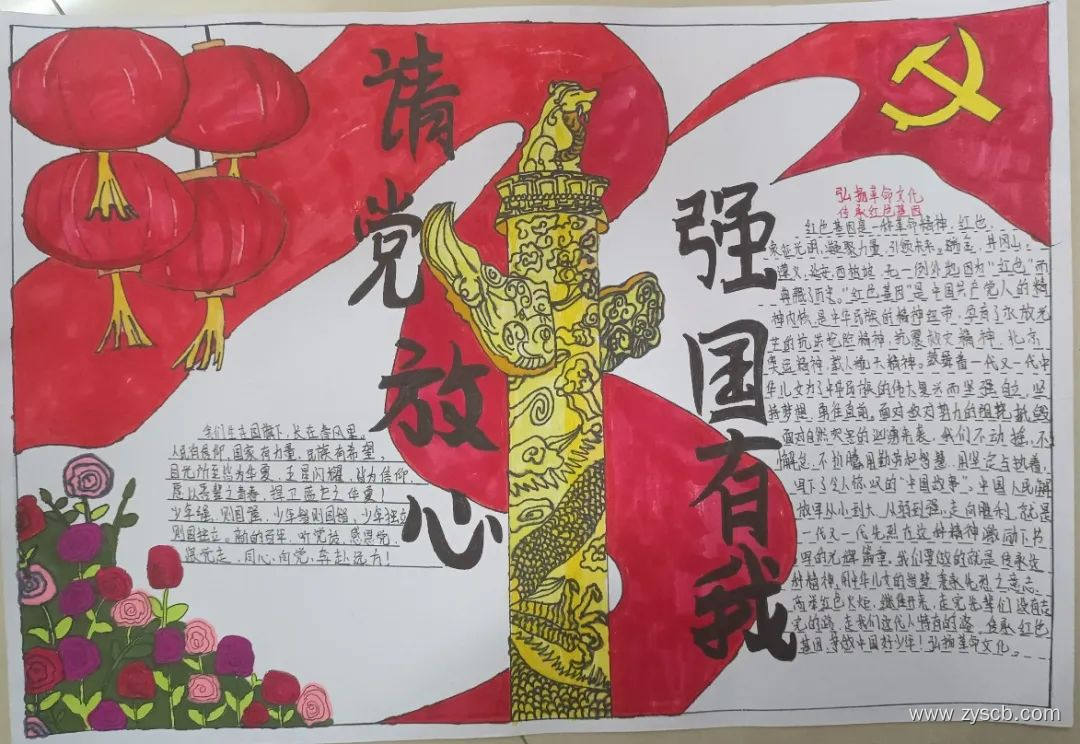 请党放心
强国有我
我们生在国旗下，长在春风里。
人民有信仰，国家有力量，民族有希望，
目光所至皆为华夏，五星闪耀，皆为信仰，
愿以吾辈之青春，捍卫盛世之华夏！
少年强，则国强，少年智则国智，少年独立
则国独立。新的百年，听党话，感恩党，
跟党走，同心向党，奔赴远方！
弘扬革命文化
传承红色基因
红色基因是一种革命精神，红色，
象征光明，凝聚力量，引领未来，瑞金，井冈山，
遵义，延安，西柏坡，无一例外地因为“红色”而
“红色基因”是中国共产党人的精
神内核，是中华民族的精神纽带，孕育了
的抗洪抢险精神，抗震救灾精神，北京
奥运精神，载人航天精神。鼓舞着一代又一代中
华儿女为了中华民族的伟大复兴而坚强自立，坚
持梦想，勇往直前。面对敌对势力的阻挠
面对自然灾害的汹涌来袭，我们不动摇，不
懈怠，不折腾，用勤劳和智慧，用坚定与执着，
写下了令人惊叹的“中国故事”。中国人民解
放军从小到大，从弱到强，走向胜利，就是
一代又一代先烈在这种精神激励下书
写的光辉篇章。我们要做的就是传承这
种精神，用中华儿女的智慧秉承先烈之意志，
高举红色火炬，继往开来，走完先辈们没有走
完的路，走我们这代人特有的路，传承红色
基因，争做中国好少年！弘扬革命文化。
www.zyscb.com